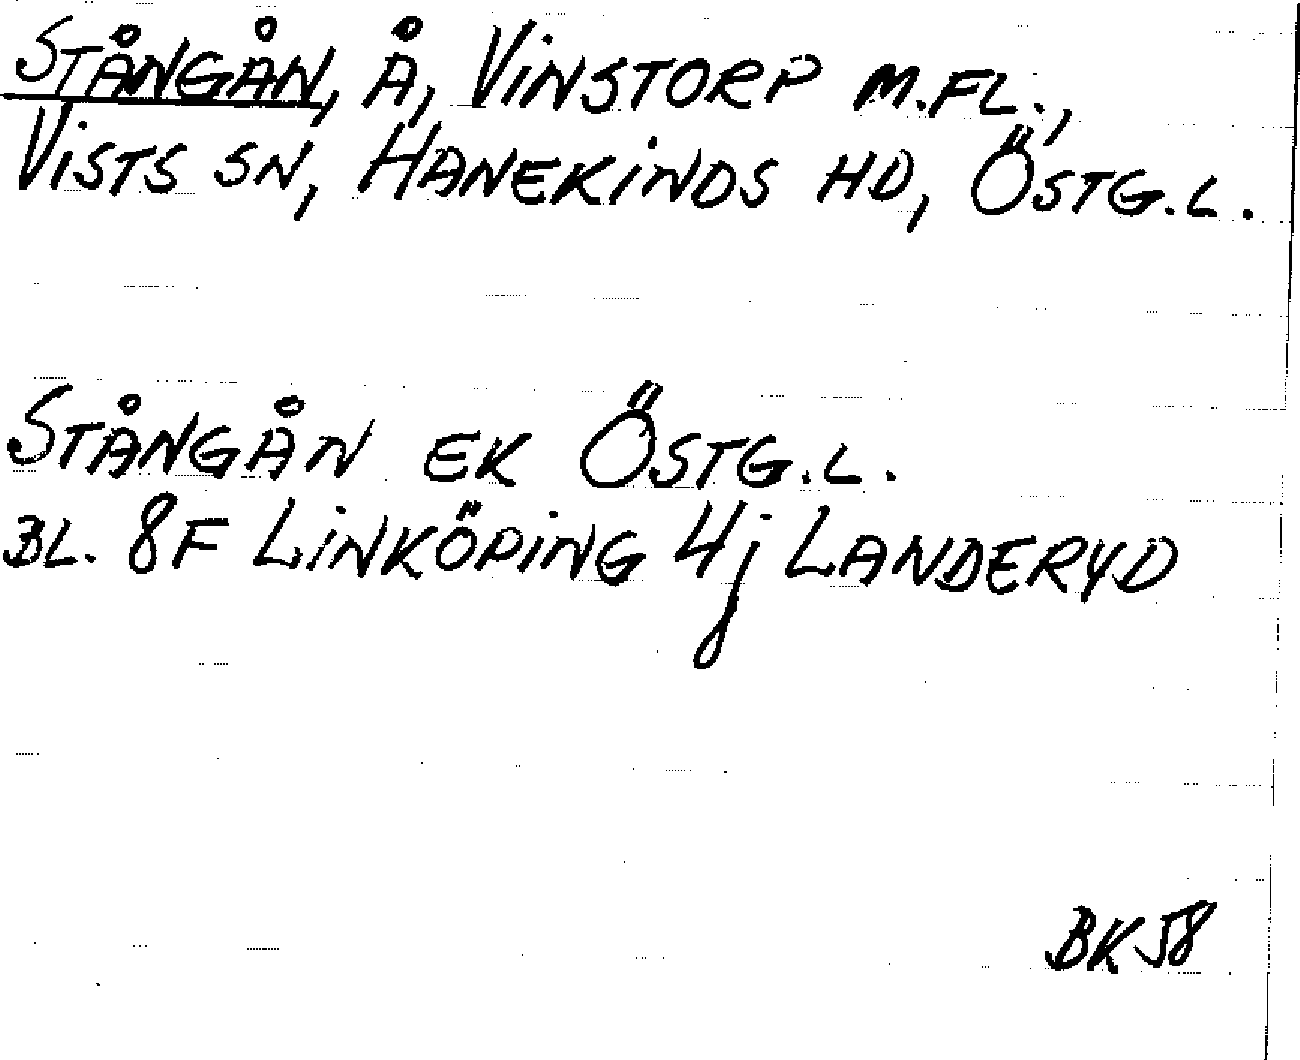 STÅNGÅN, Å, VINSTORP M.FL.,
VISTS SN, HANEKINDS HD, ÖSTG.L.
STÅNGÅN EK ÖSTG.L.
BL. 8F LINKÖPING 4j LANDERYD
BK 58